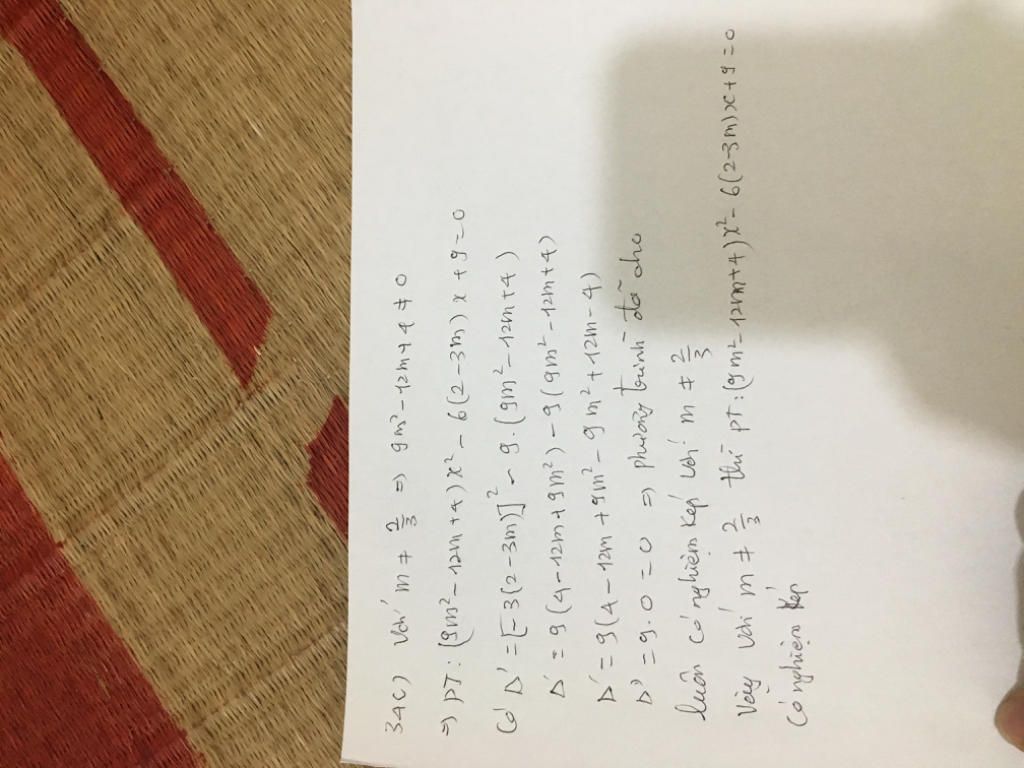 34c) Với m ≠ 2/3 => 9m² - 12m + 4 ≠ 0
=> PT : (9m² - 12m + 4) x² - 6(2 - 3m) x + 9 = 0
Có Δ' = [-3(2 - 3m)]² - 9. (9m² - 12m + 4)
Δ' = 9 (4 - 12m + 9m²) - 9 (9m² - 12m + 4)
Δ' = 9 (4 - 12m + 9m² - 9m² + 12m - 4)
Δ' = 9. 0 = 0 => phương trình đã cho
luôn có nghiệm kép với m ≠ 2/3
Vậy với m ≠ 2/3 thì PT : (9m² - 12m + 4) x² - 6(2-3m)x + 9 = 0
Có nghiệm kép